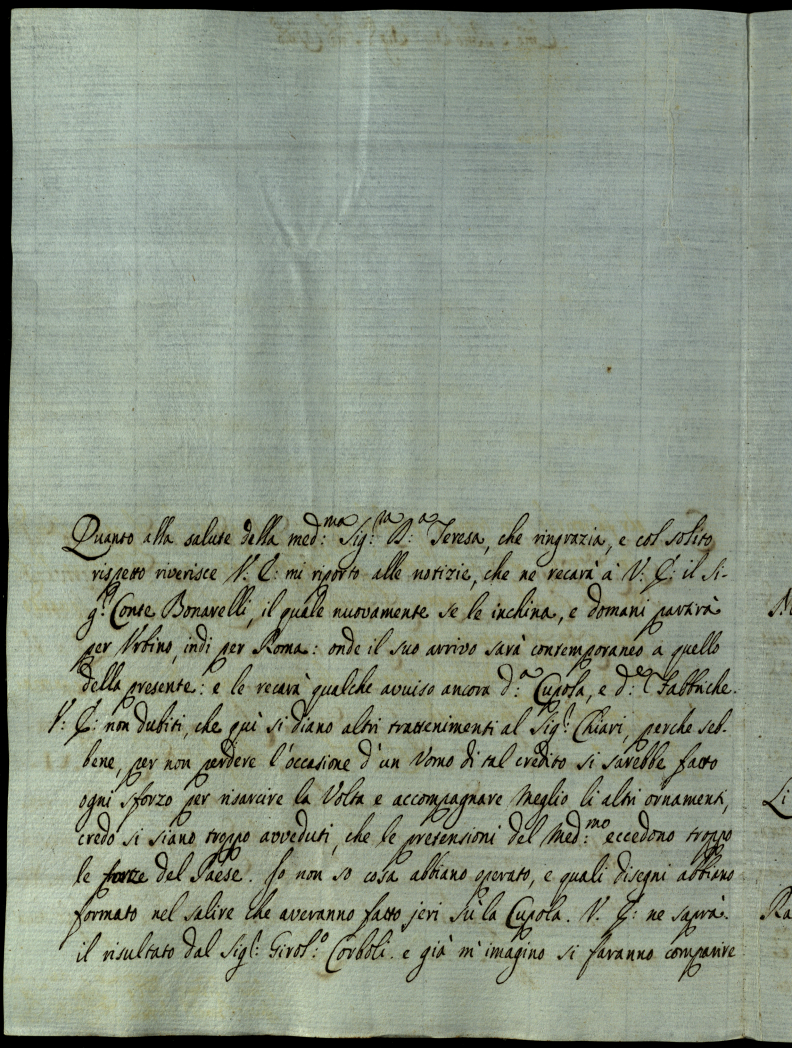 Quanto alla salute della med:ma Sig:ra D:a Teresa, che ringrazia, e col solito
rispetto riverisce V: E: mi riporto alle notizie, che ne recarà à V: E: il Si-
g:r Conte Bonarelli, il quale nuovamente se le inchina, e domani partirà
per Urbino, indi per Roma: onde il suo arrivo sarà contemporaneo a quello
della presente: e le recarà qualche avviso ancora d:a Cupola, e d:e Fabbriche.
V: E: non dubiti, che quì si diano altri trattenimenti al Sig:r Chiari, perche seb-
bene, per non perdere l'occasione d'un Uomo di tal credito si sarebbe fatto
ogni sforzo per risarcire la Volta e accompagnare meglio li altri ornamenti,
credo si siano troppo avveduti, che le pretensioni del Med:mo eccedono troppo
le forze del Paese. Io non so cosa abbiano operato, e quali disegni abbiano
formato nel salire che averanno fatto jeri sù la Cupola. V. E: ne saprà
il risultato dal Sig:r Girol:o Corboli. e già m'imagino si faranno comparire